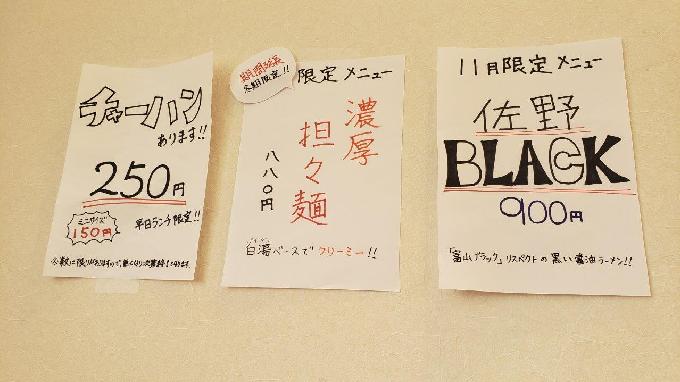 チャーハン
あります!!
250円
ミニサイズ
150円
平日ランチ限定!!
※数に限りがありますので、無くなり次第終了となります。
期間延長
冬期限定!!
限定メニュー
濃厚
担々麺
八八〇円
白湯ベースでクリーミー!!
11月限定メニュー
佐野
BLACK
900円
「富山ブラック」リスペクトの黒い醤油ラーメン!!